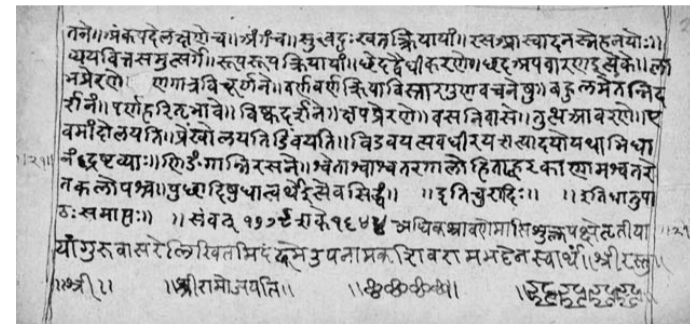 तने॥ अंकपदेलक्षणेच॥ अंगंच॥ सुखदुःखतत्क्रियायां॥ रसआस्वादनस्नेहनयोः॥
व्ययवित्तसमुत्सर्गे॥ रूपरूपक्रियायां॥ छेदद्वैधीकरणे॥ छदअपवारणइत्येके॥ ला
भप्रेरणे॥ व्रणगात्रविचूर्णने॥ वर्णवर्णक्रियाविस्तारगुणवचनेषु॥ बहुलमेतन्निद
र्शनं॥ पर्णहरितभावे॥ विष्कदर्शने॥ क्षपप्रेरणे॥ वसनिवासे॥ तुत्थआवरणे॥ ए
वमांदोलयति॥ प्रेंखोलयति विडंबयति॥ अवधीरयतीत्यादयोयथाभिधा
नंद्रष्टव्याः॥ णिङंगान्निरसने॥ श्वेताश्वाश्वतरगालोडिताह्वरकाणामश्वतरे
तकलोपश्च॥ पुच्छादिषुधात्वर्थेइत्येवसिद्धं॥ ॥ इतिचुरादिः॥ ॥ इतिधातुपा
ठःसमाप्तः॥ ॥ संवत् १७७९ शके १६४४ अधिकश्रावणेमासिशुक्लपक्षेतृतीया
यांगुरुवासरेलिखितमिदं उपनामकशिवरामभट्टेनस्वार्थं॥ श्रीरस्तु॥
॥ श्री॥ ॥ श्रीरामोजयति॥